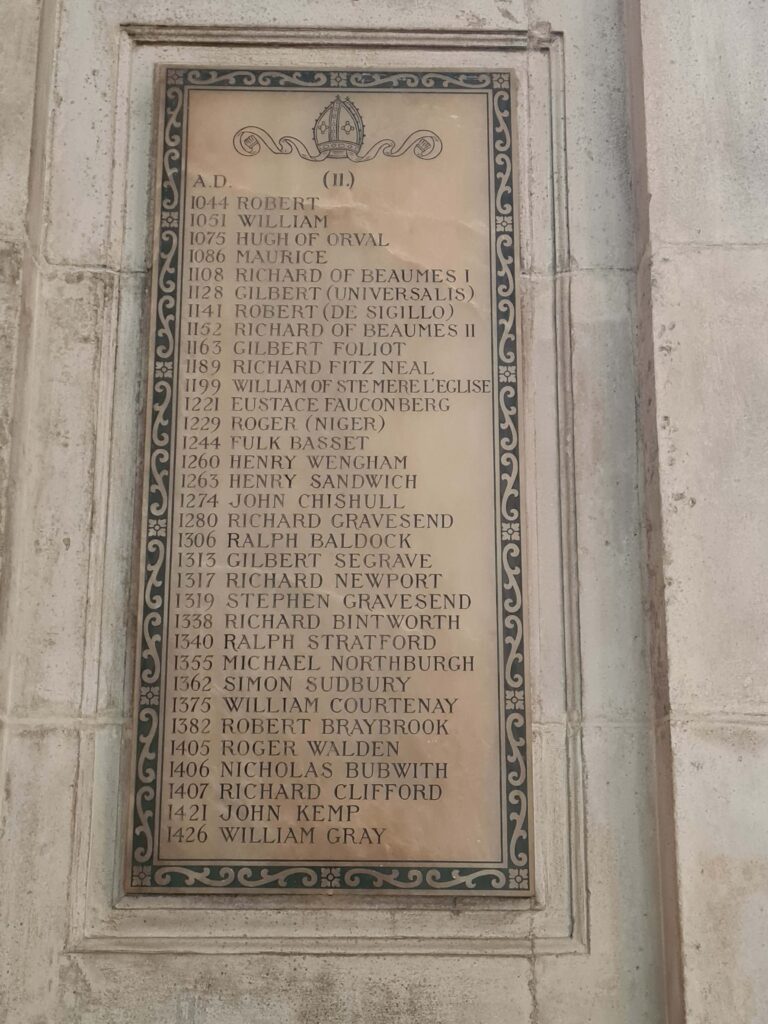 A.D. (II.)
1044 ROBERT
1051 WILLIAM
1075 HUGH OF ORVAL
1086 MAURICE
1108 RICHARD OF BEAUMES I
1128 GILBERT (UNIVERSALIS)
1141 ROBERT (DE SIGILLO)
1152 RICHARD OF BEAUMES II
1163 GILBERT FOLIOT
1189 RICHARD FITZ NEAL
1199 WILLIAM OF STE MERE L'EGLISE
1221 EUSTACE FAUCONBERG
1229 ROGER (NIGER)
1244 FULK BASSET
1260 HENRY WENGHAM
1263 HENRY SANDWICH
1274 JOHN CHISHULL
1280 RICHARD GRAVESEND
1306 RALPH BALDOCK
1313 GILBERT SEGRAVE
1317 RICHARD NEWPORT
1319 STEPHEN GRAVESEND
1338 RICHARD BINTWORTH
1340 RALPH STRATFORD
1355 MICHAEL NORTHBURGH
1362 SIMON SUDBURY
1375 WILLIAM COURTENAY
1382 ROBERT BRAYBROOK
1405 ROGER WALDEN
1406 NICHOLAS BUBWITH
1407 RICHARD CLIFFORD
1421 JOHN KEMP
1426 WILLIAM GRAY